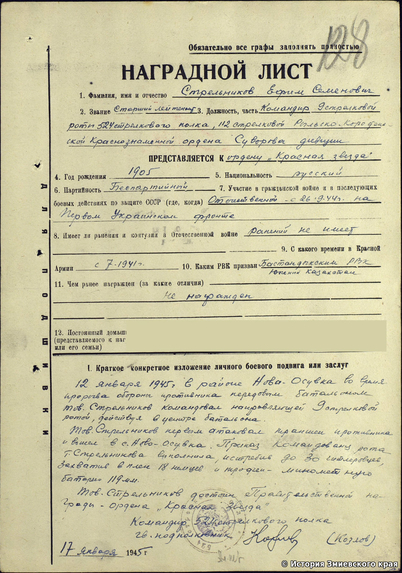 Обязательно все графы заполнять полностью
128
НАГРАДНОЙ ЛИСТ
1. Фамилия, имя и отчество Стрельников Ефим Семенович
2. Звание Старший лейтенант 3. Должность, часть Командир 3 стрелковой
роты 524 стрелкового полка, 112 стрелковой Рыльско-Коростенской
Краснознаменной ордена Суворова дивизии
ПРЕДСТАВЛЯЕТСЯ К ордену „Красная звезда"
4. Год рождения 1905 5. Национальность русский
6. Партийность Беспартийный 7. Участие в гражданской войне и в последующих
боевых действиях по защите СССР (где, когда) Отечественной с 26.9.44г. на
Первом Украинском фронте
8. Имеет ли ранения и контузии в Отечественной войне ранений не имеет
9. С какого времени в Красной
Армии с 7-1941г. 10. Каким РВК призван РВК
Казахстан
11. Чем ранее награжден (за какие отличия)
Не награжден
12. Постоянный домаш
(представляемого к наг
или его семьи)
I. Краткое конкретное изложение личного боевого подвига или заслуг
12 января 1945г. в районе Нова-Осувка во время
прорыва обороны противника передовым батальоном
тов. Стрельников командовал направляющей 3 стрелковой
ротой, действуя в центре батальона.
Тов. Стрельников первым атаковал траншеи противника
и вышел в с. Ново-Осувка. Приказ Командования рота
т. Стрельникова выполнила, истребив до 30 гитлеровцев,
захватив в плен 18 немцев и трофеи - минометную
батарею 119 мм.
Тов. Стрельников достоин Правительственной на-
грады - ордена „Красная Звезда"
Командир 524 стрелкового полка
гв. подполковник (Козлов)
17 января 1945 г.
ПОДШИВКИ
© История Змиевского края